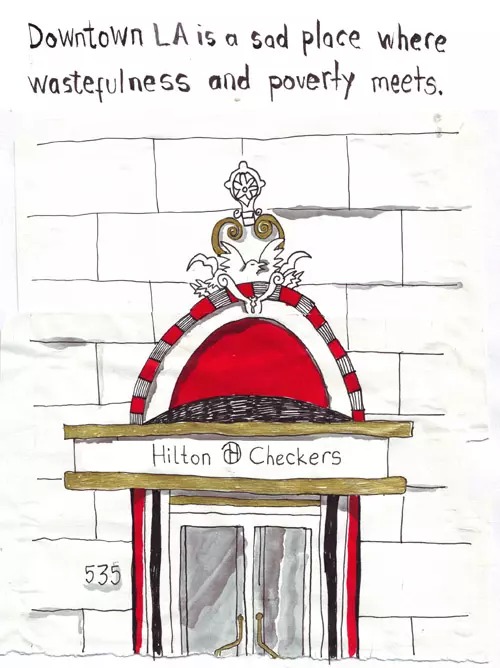 Downtown LA is a sad place where
wastefulness and poverty meets.
Hilton H Checkers
535